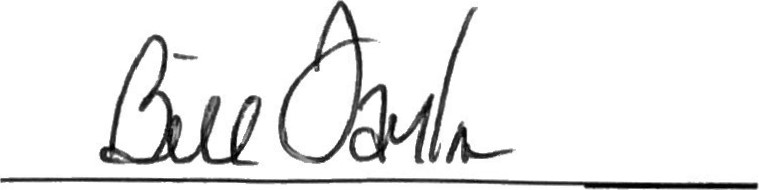 Bill Taylor